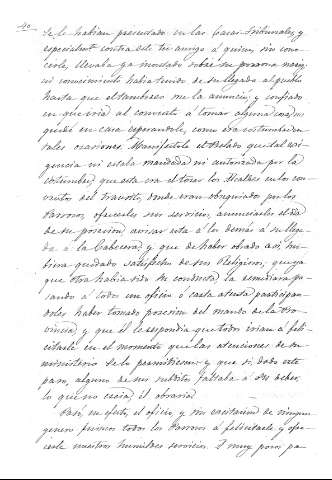 40
se le habian presentado en las Casas Tribunales, y
especialmente contra este su amigo á quien, sin cono-
cerle, llevaba ya mostrado sobre su persona ningun
conocimiento habia tenido de su llegada al pueblo
hasta que el tambor se la anunció, y confiado
en que iria al convento á tomar alguna cosa, se
quedó en casa esperandole, como era costumbre en
tales ocasiones. Manifestole el Prelado que tal exi-
gencia ni estaba mandada ni autorizada por la
costumbre, que esta era el tocar los Alcaldes en los con-
ventos del transito, donde eran obsequiados por los
Parrocos, ofrecerles sus servicios, anunciarles el dia
de su posesion, avisar esta á los demás á su llega-
da á la Cabecera, y que de haber obrado asi, hu-
biera quedado satisfecho de sus Religiosos, que ya
que otra habia sido su conducta, la remediara pa-
sando á todos un oficio ó carta atenta participan-
doles haber tomado posesion del mando de la Pro-
vincia, y que él le respondia que todos irian á feli-
citarle en el momento que las atenciones de su
ministerio se lo permitiesen, y que si, dado este
paso, alguno de sus subditos faltaba á su deber,
lo que no creia, él obraria.
Pasó, en efecto, el oficio, y sin excitacion de ningun
genero fuimos todos los Parrocos á felicitarle y ofre-
cerle nuestros humildes servicios. Y muy poco, pa-